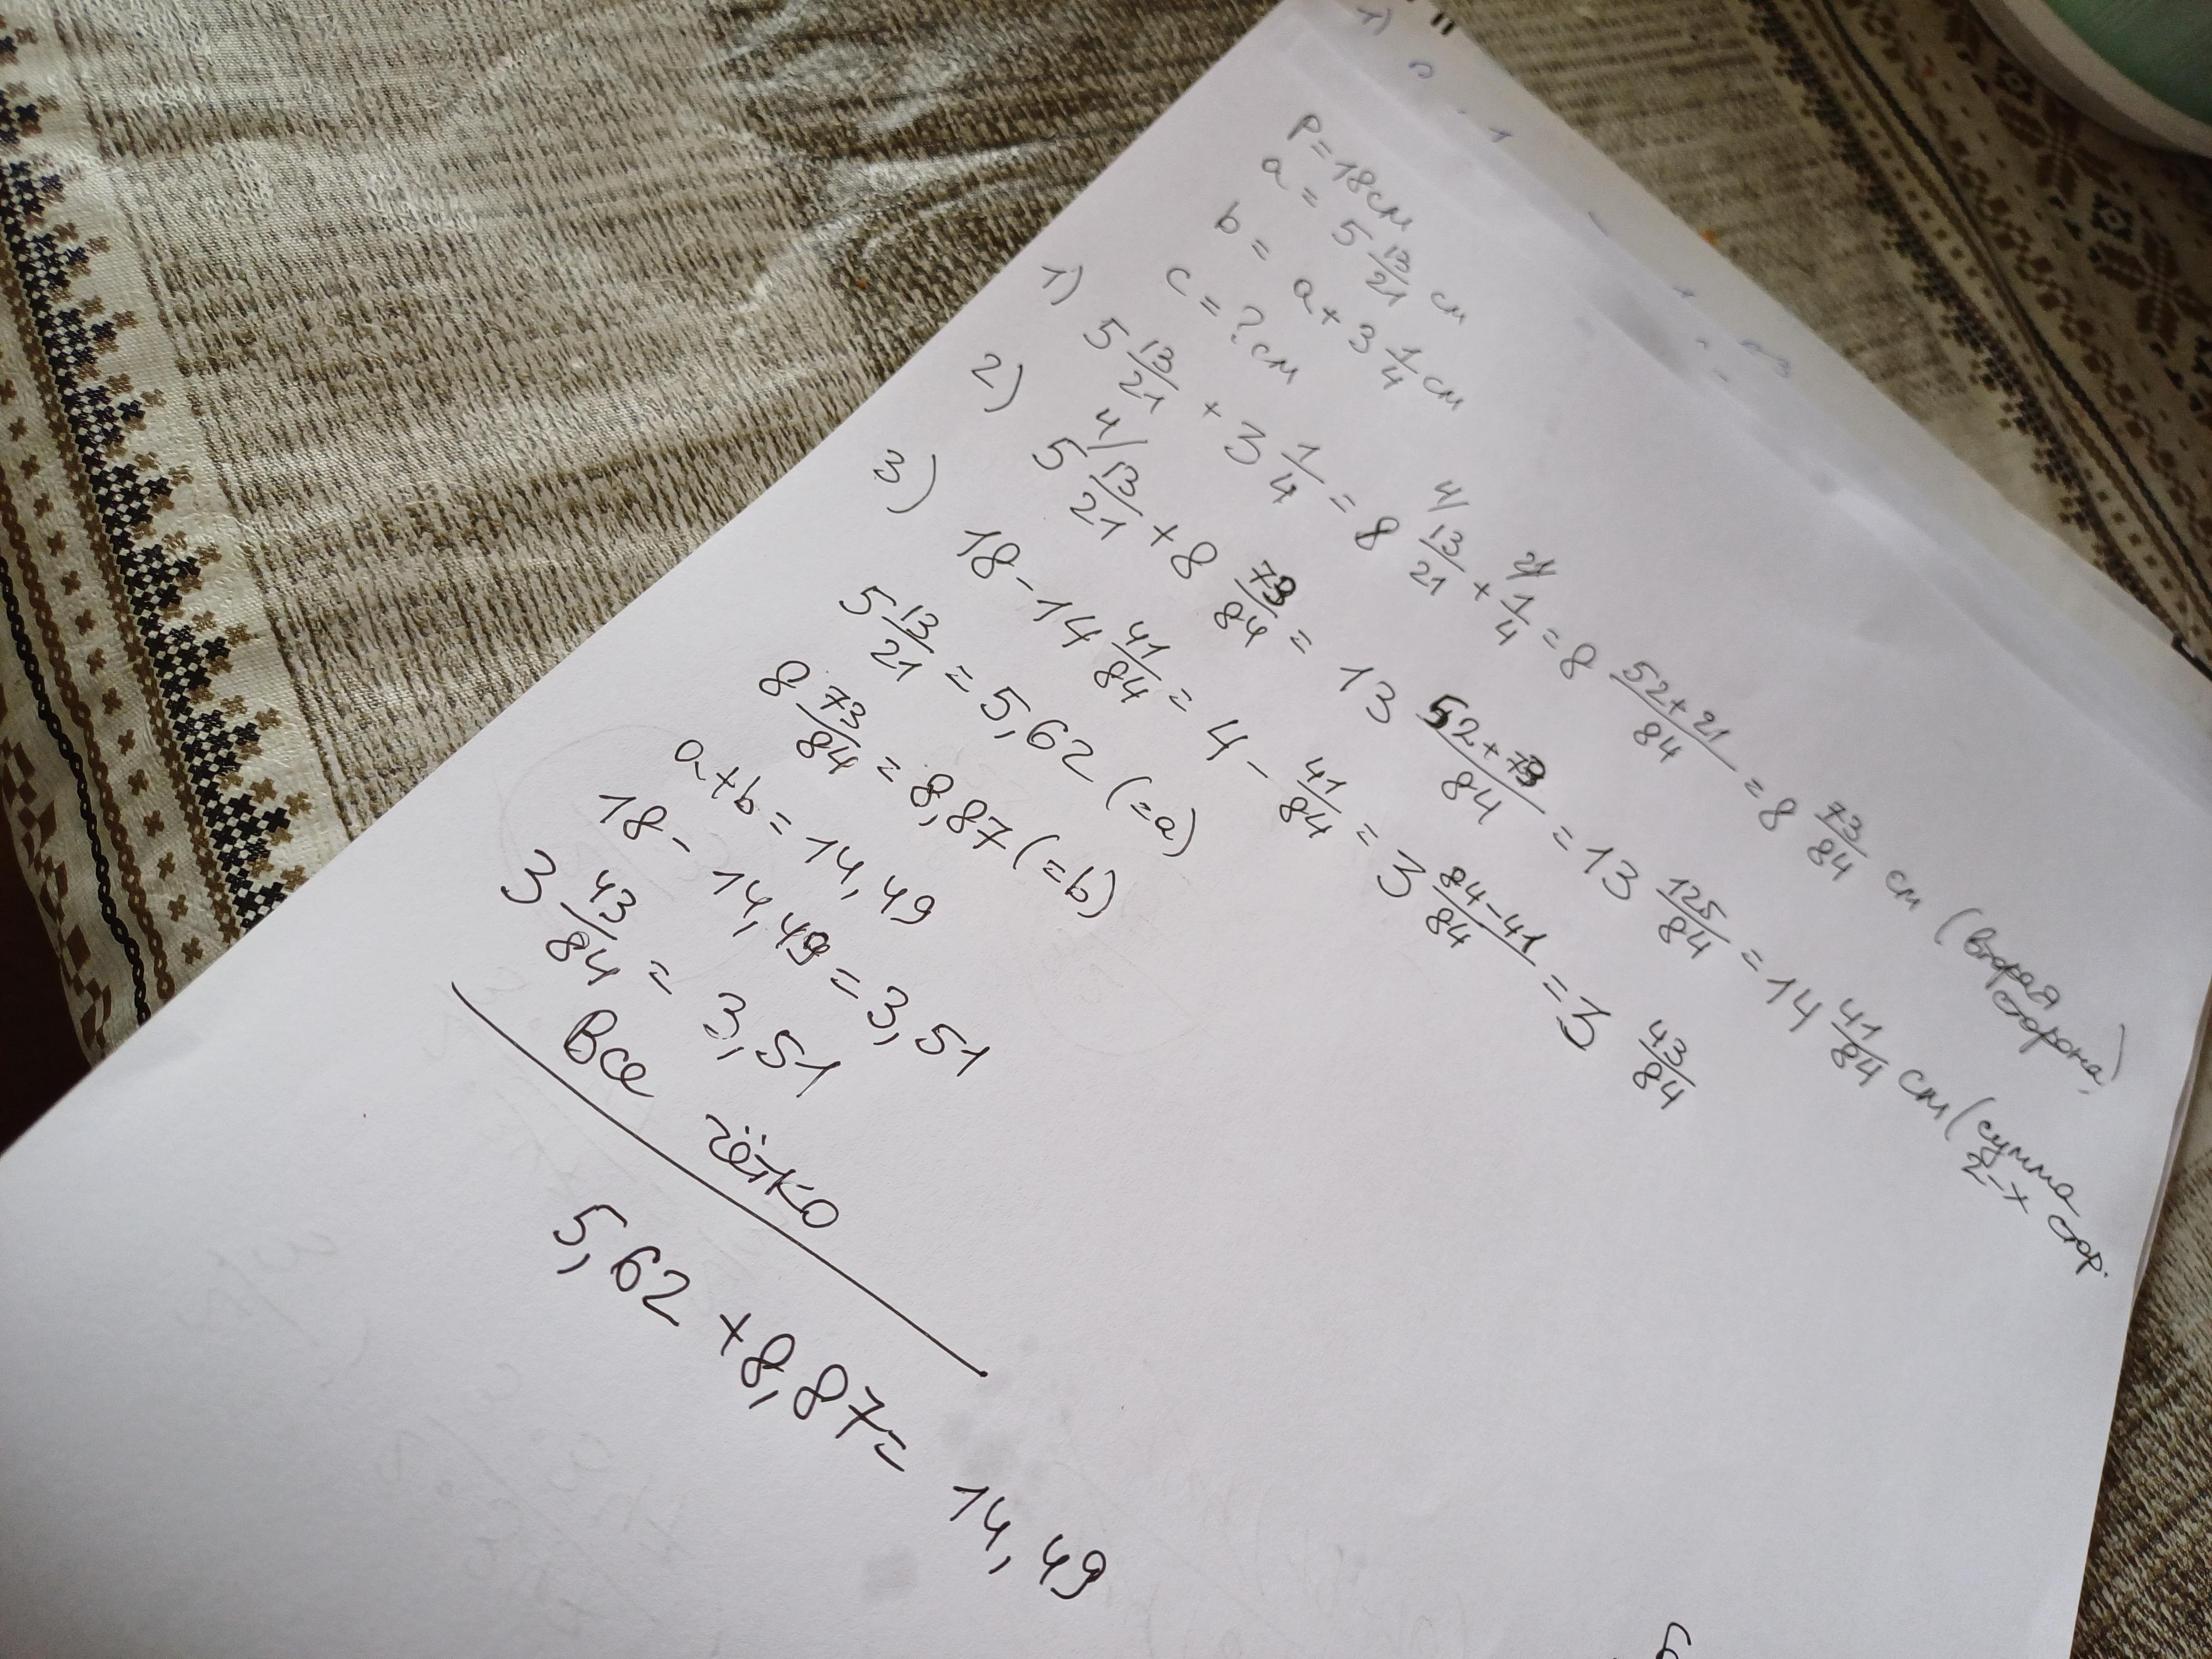 P = 18 см
a = 5 13/21 см
b = a + 3 1/4 см
c = ? см
1) 5 13/21 + 3 1/4 = 8 4/ 13/21 + 21/ 1/4 = 8 52+21/84 = 8 73/84 см (вторая сторона)
2) 5 4/ 13/21 + 8 73/84 = 13 52+73/84 = 13 125/84 = 14 41/84 см (сумма 2-х стор.
3) 18 - 14 41/84 = 4 - 41/84 = 3 84-41/84 = 3 43/84
5 13/21 = 5,62 (=a)
8 73/84 = 8,87 (=b)
a+b = 14,49
18 - 14,49 = 3,51
3 43/84 = 3,51
Все чётко
5,62 + 8,87 = 14,49